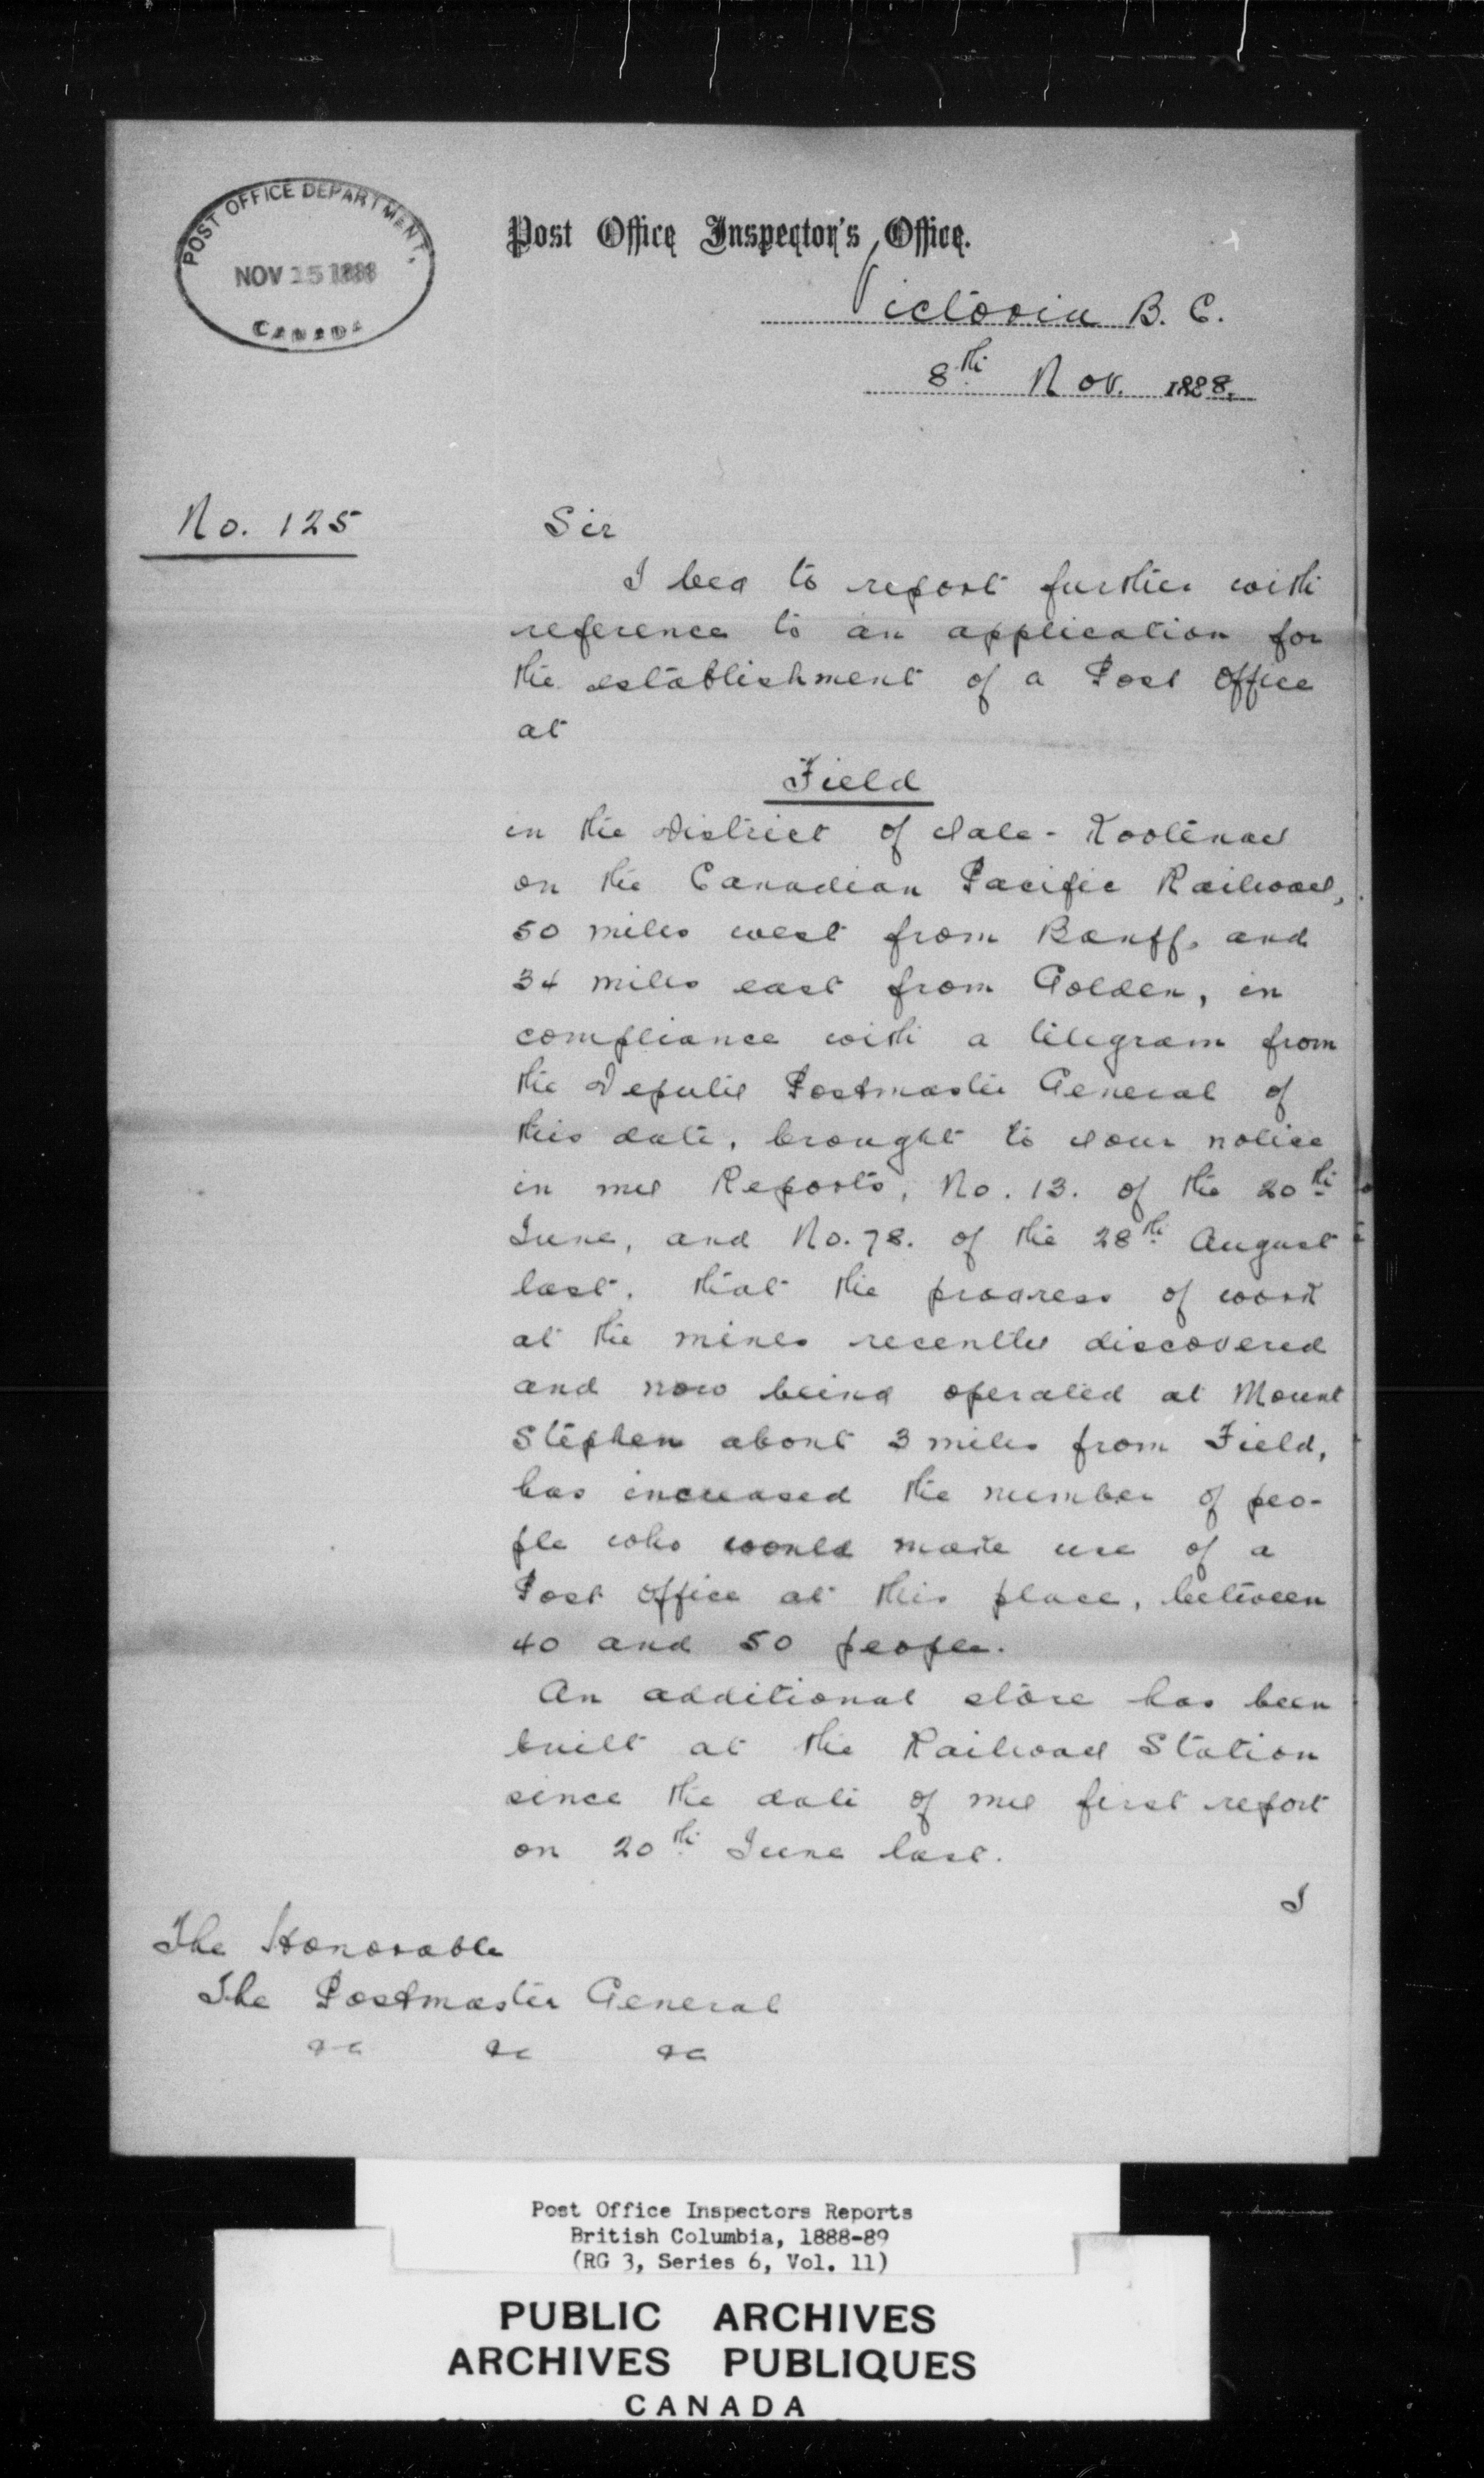 POST OFFICE DEPARTMENT.
NOV 15 1888
CANADA
Post Office Inspector's Office.
Victoria B. C.
8th Nov. 1888.
No. 125
Sir
I beg to report further with
reference to an application for
the establishment of a Post Office
at
Field
in the District of Yale - Kootenay
on the Canadian Pacific Railway,
50 miles west from Banff, and
34 miles east from Golden, in
compliance with a telegram from
the Deputy Postmaster General of
this date, brought to your notice
in my Reports, No. 13. of the 20th
June, and No. 78. of the 28th August
last, that the progress of work
at the mines recently discovered
and now being operated at Mount
Stephen about 3 miles from Field,
has increased the number of peo-
ple who would make use of a
Post Office at this place, between
40 and 50 people.
An additional store has been
built at the Railway Station
since the date of my first report
on 20th June last.
I
The Honorable
The Postmaster General
&c &c &c
Post Office Inspectors Reports
British Columbia, 1888-89
(RG 3, Series 6, Vol. 11)
PUBLIC ARCHIVES
ARCHIVES PUBLIQUES
CANADA